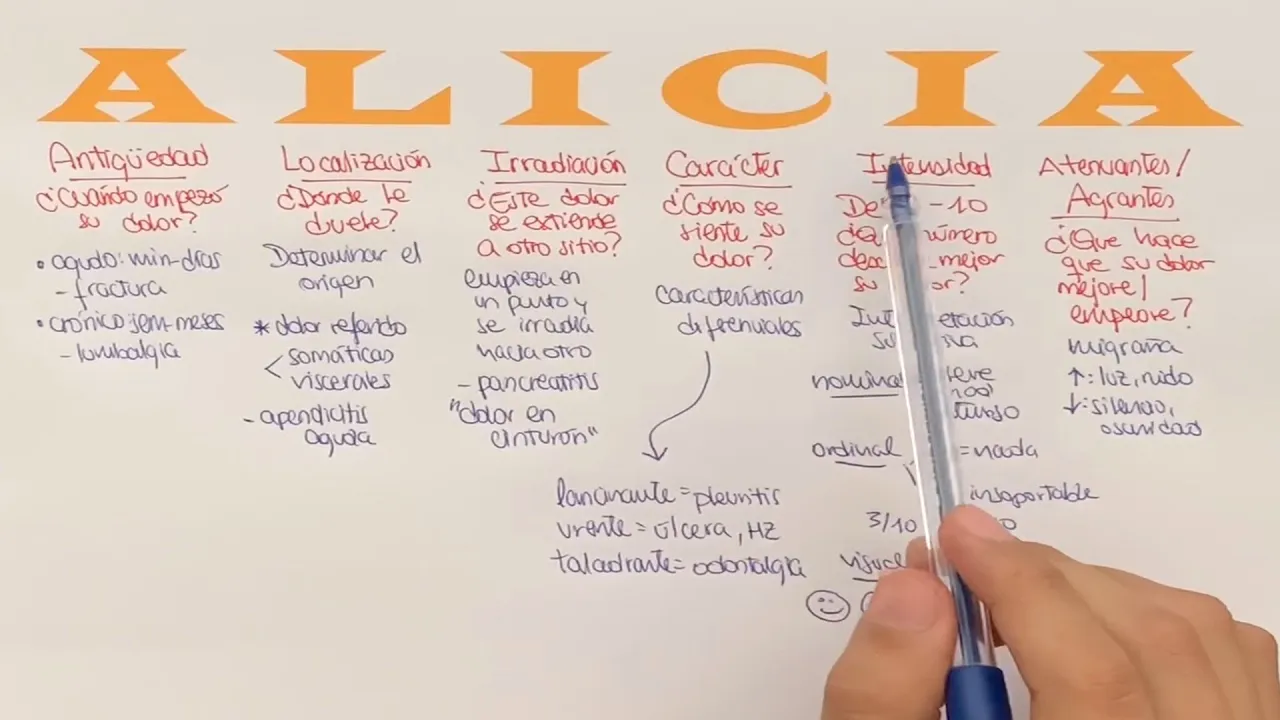 ALICIA
Antigüedad
¿Cuándo empezó
su dolor?
• agudo: min-días
- fractura
• crónico: sem-meses
- lumbalgia
Localización
¿Dónde le
duele?
Determinar el
origen
* dolor referido
< somáticas
viscerales
- apendicitis
aguda
Irradiación
¿Este dolor
se extiende
a otro sitio?
empieza en
un punto y
se irradia
hacia otro
- pancreatitis
"dolor en
cinturón"
Carácter
¿Cómo se
siente su
dolor?
características
diferenciales
lancinante = pleuritis
urente = úlcera, HZ
taladrante = odontalgia
Intensidad
De - 10
número
mejor
su
nominal
ordinal = nada
insoportable
3/10
Atenuantes/
Agrantes
¿Que hace
que su dolor
mejore/
empeore?
migraña
↑: luz, ruido
↓: silencio,
oscuridad